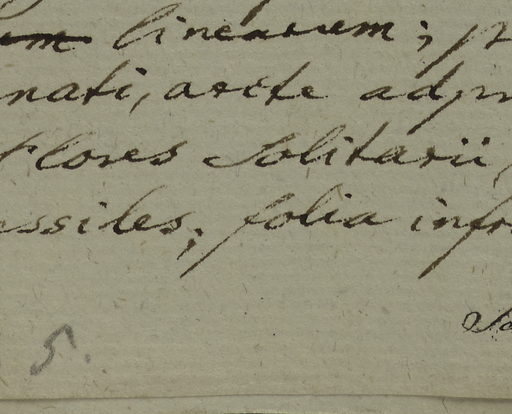 um linearum; p
nati, arcte adpr
Flores Solitarii,
essiles; folia infr
5.